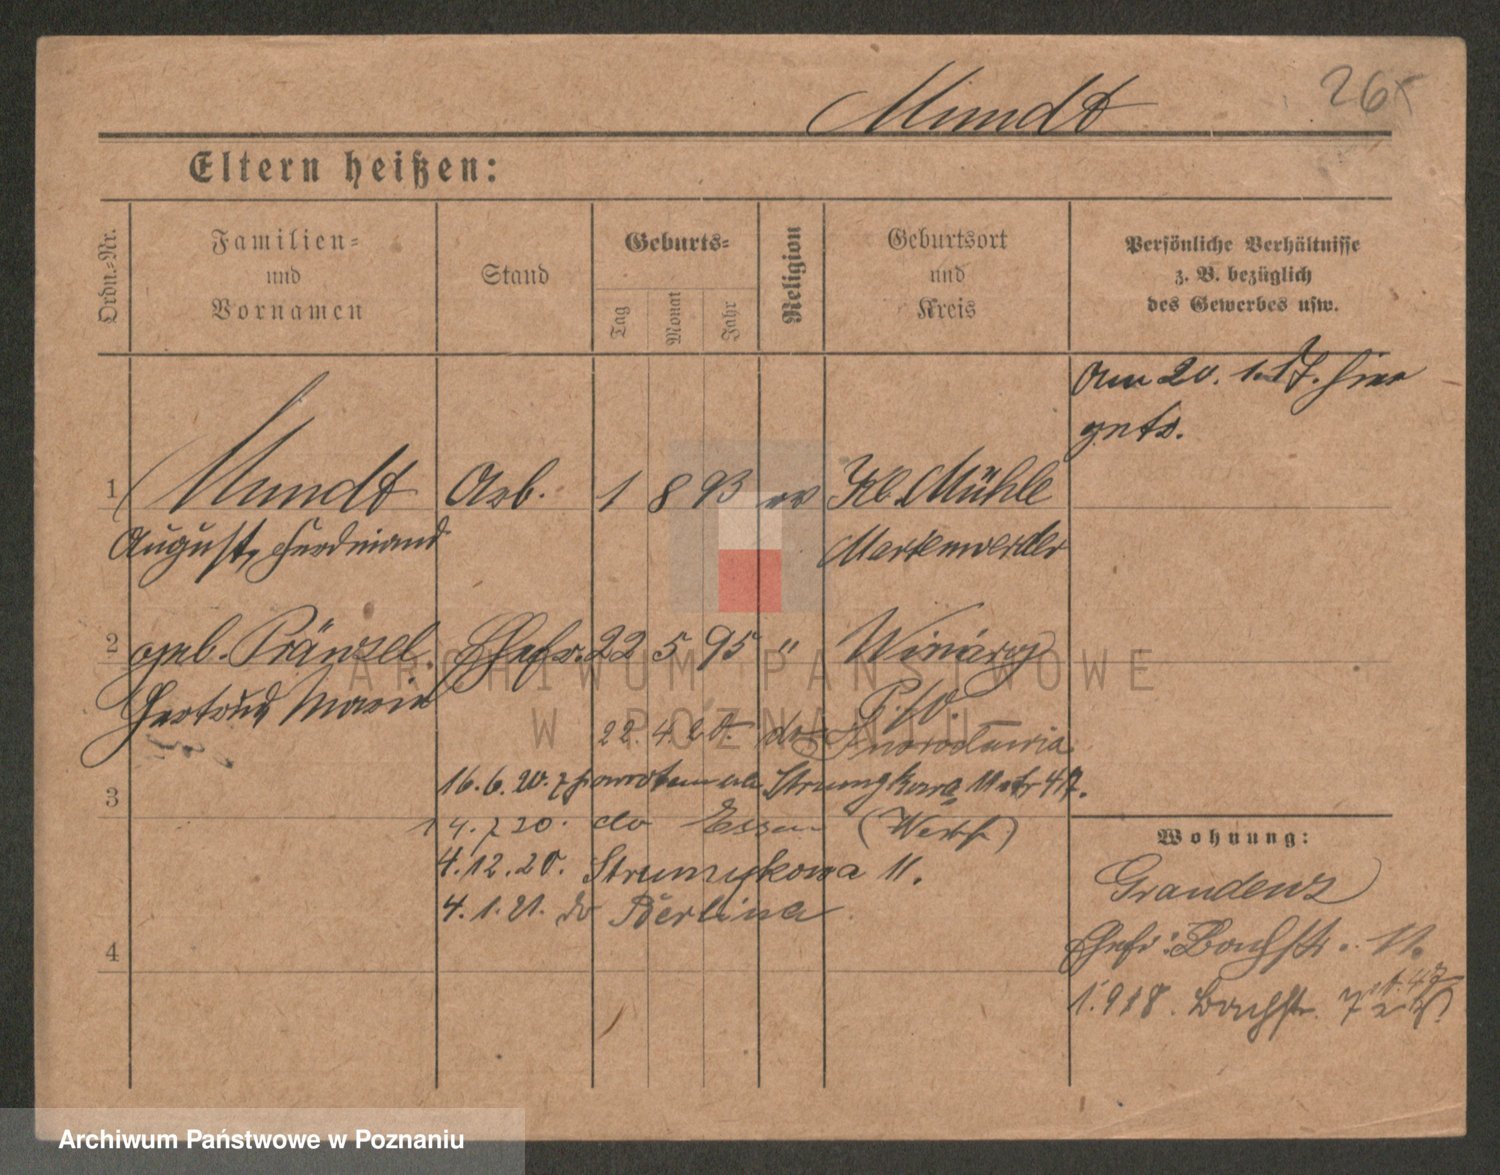 Mundt
26
Eltern heißen:
Ordn.-Nr.
Familien-
und
Vornamen
Stand
Geburts-
Tag
Monat
Jahr
Religion
Geburtsort
und
Kreis
Persönliche Verhältnisse
z. B. bezüglich
des Gewerbes usw.
Am 20. 1. 17. hier
getr.
1 Mundt Arb. 1 8 93 ev Kl. Mühle
August, Ferdinand Marienwerder
2 geb. Pränzel. Ehefr. 22 5 95 "
Gertrud Marie
22. 4. 20. do Inowrocławia
16. 6. 20. z powrotem ul. Strumykowa 11 47.
3
14. 7 20. do Essen (Westf)
4. 12. 20. Strumykowa 11.
4. 1. 21. do Berlina
4
Wohnung:
Graudenz
Ehefr: Bachstr. 11.
1. 9 18. Bachstr. 7
ARCHIWUM PAŃSTWOWE
W POZNANIU
Archiwum Państwowe w Poznaniu